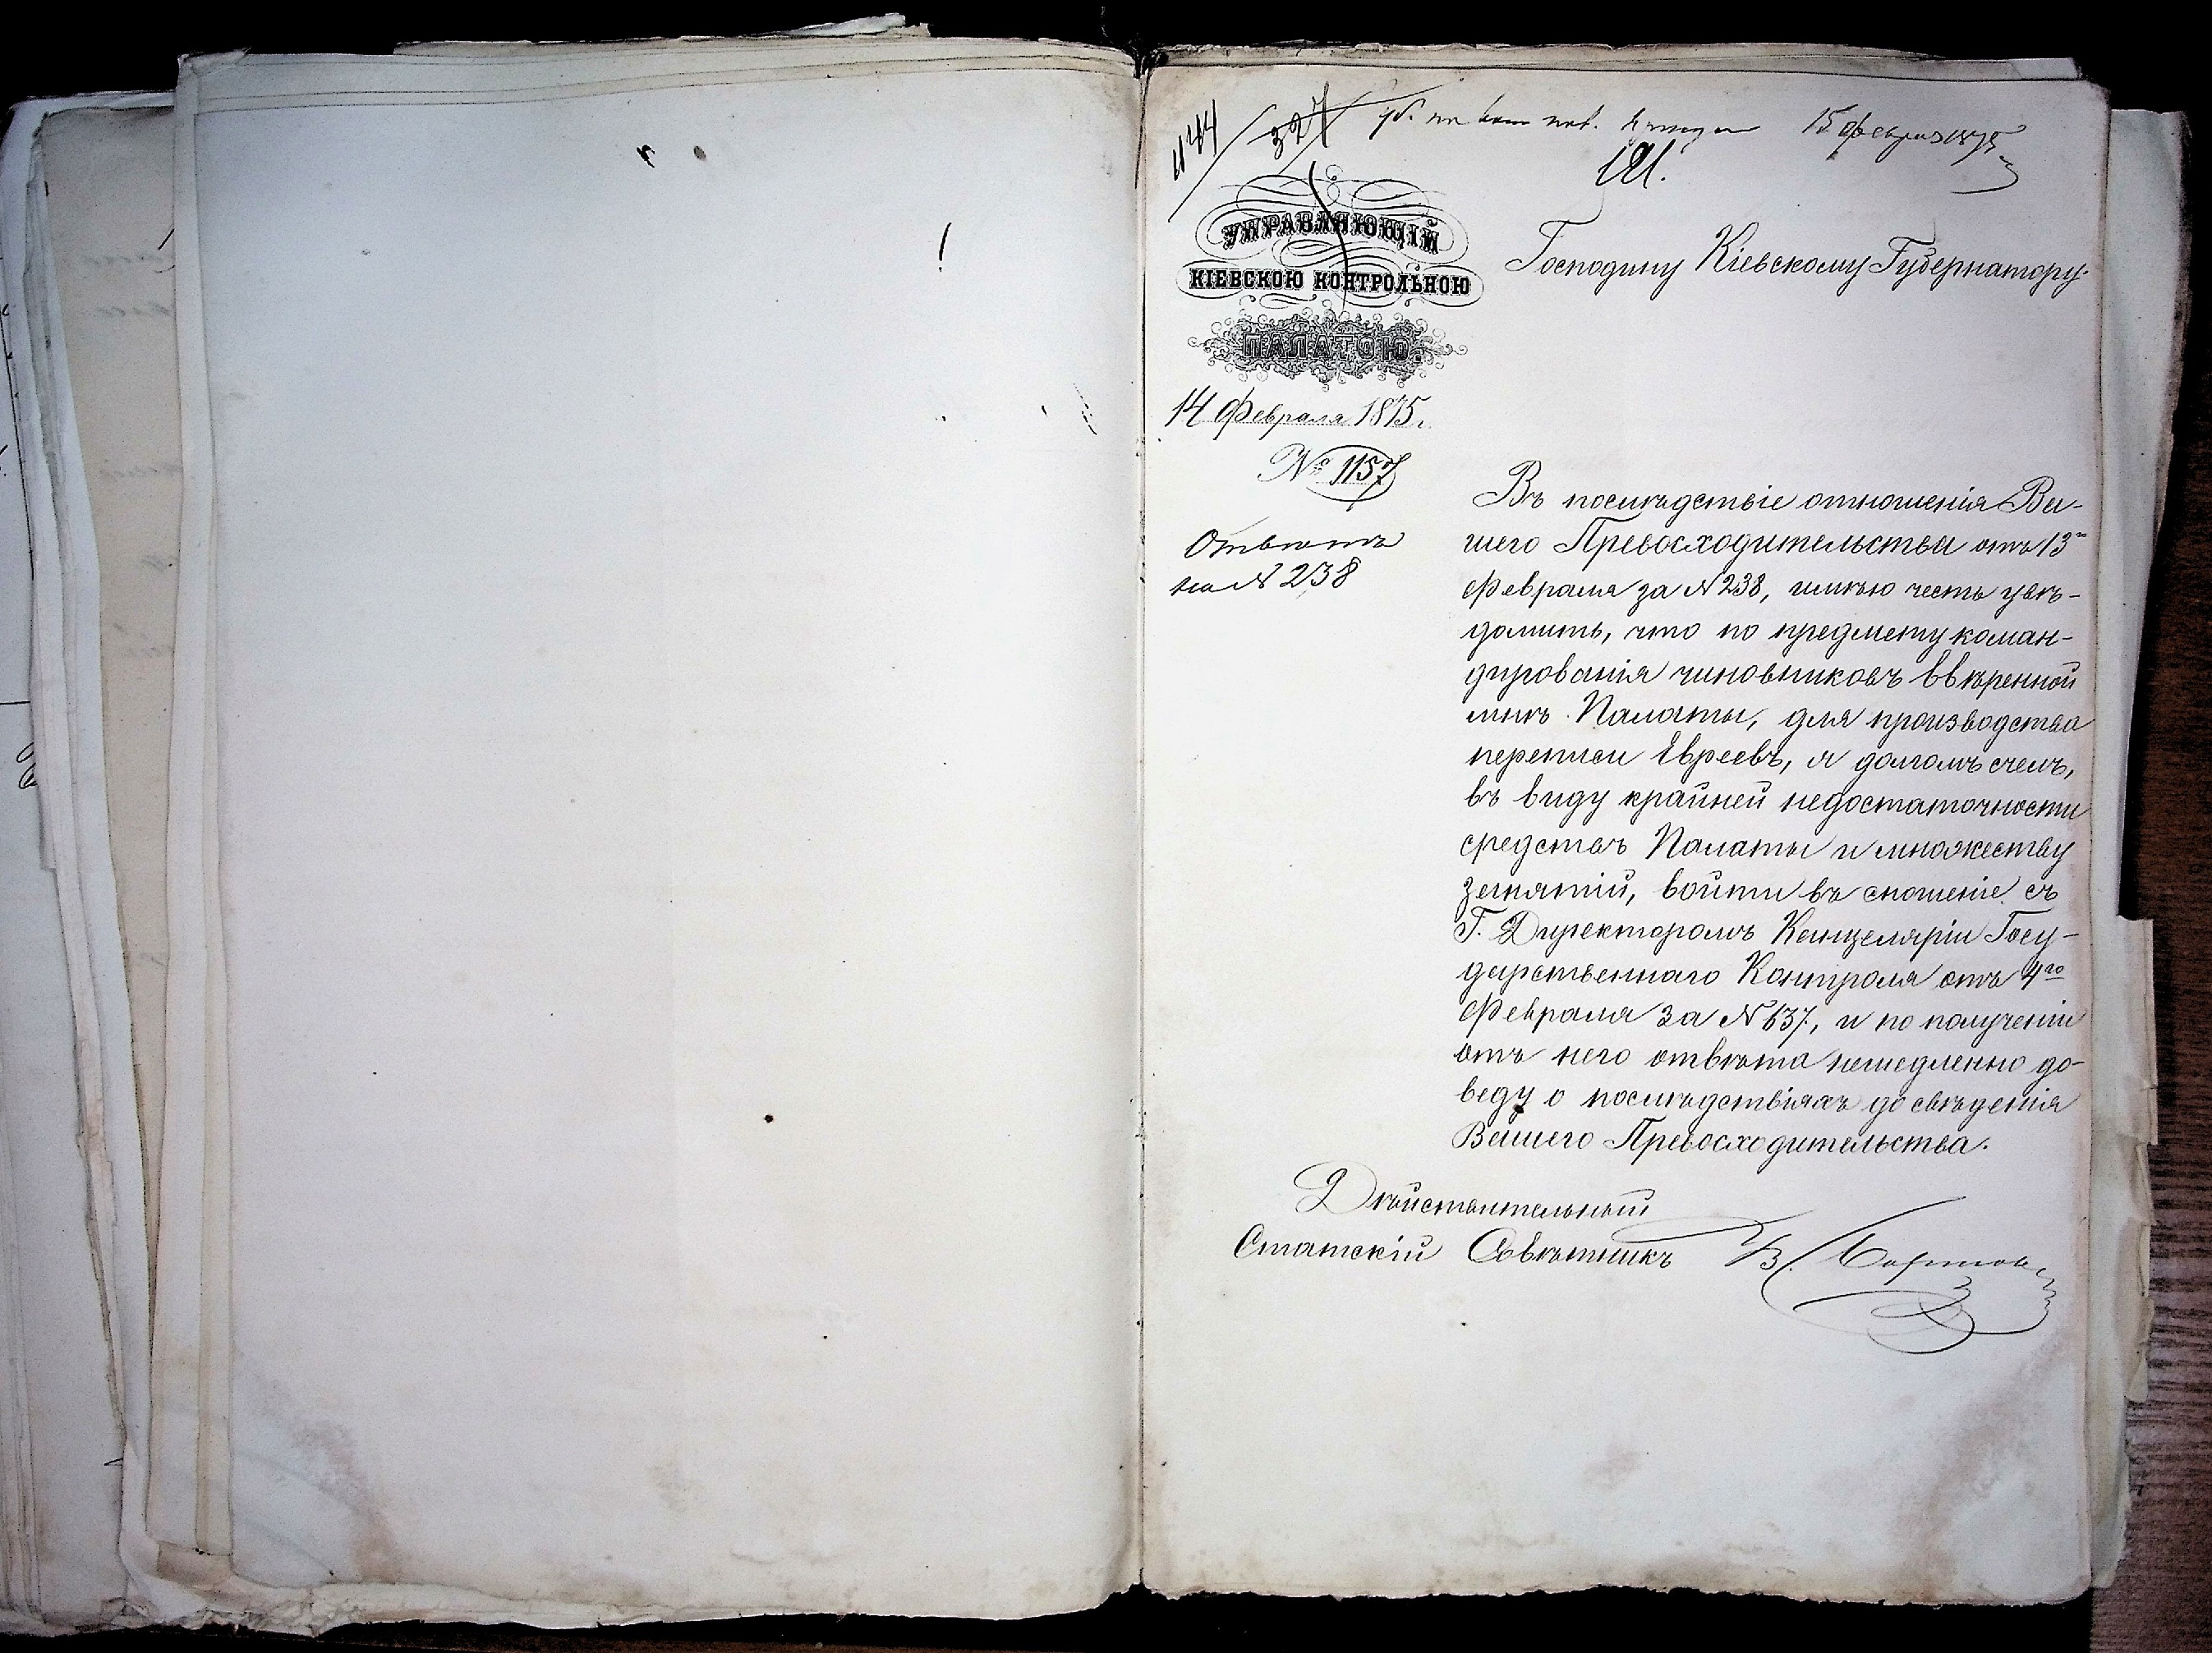 1144
327
15 Февраля 1875
УПРАВЛЯЮЩІЙ
КІЕВСКОЮ КОНТРОЛЬНОЮ
ПАЛАТОЮ.
14 Февраля 1875.
№ 1157
Отвѣтъ
на № 238
Господину Кіевскому Губернатору.
Въ послѣдствіе отношенія Ва-
шего Превосходительства отъ 13
Февраля за № 238, имѣю честь увѣ-
домить, что по предмету коман-
дированія чиновниковъ ввѣренной
мнѣ Палаты, для производства
переписи Евреевъ, я долгомъ счелъ,
въ виду крайней недостаточности
средствъ Палаты и множеству
занятій, войти въ сношеніе съ
Г. Директоромъ Канцеляріи Госу-
дарственнаго Контроля отъ 4го
Февраля за № 637, и по полученіи
отъ него отвѣта немедленно до-
веду о послѣдствіяхъ до свѣденія
Вашего Превосходительства.
Дѣйствительный
Статскій Совѣтникъ